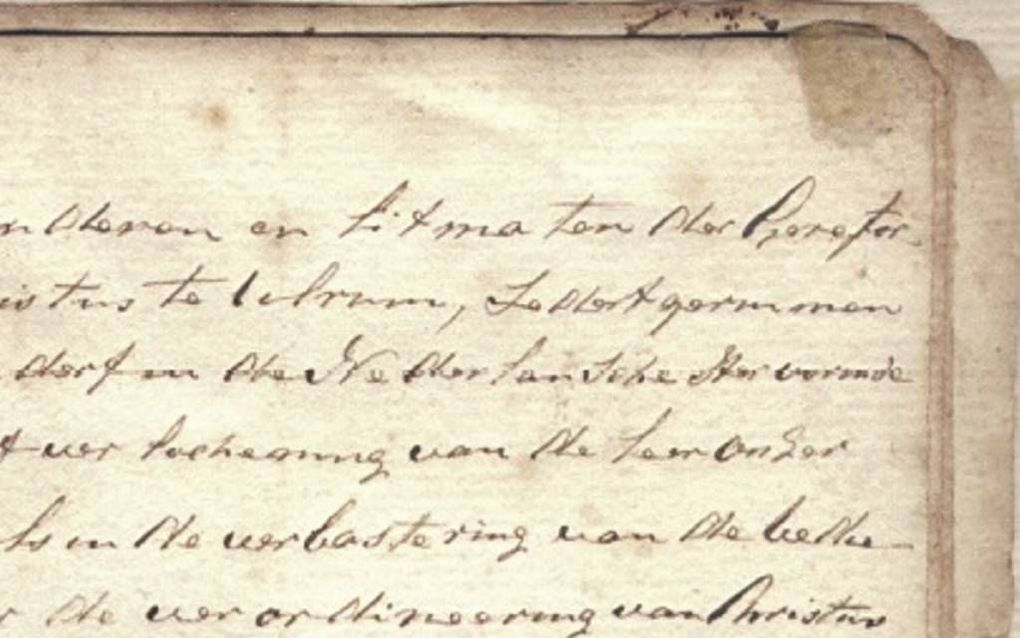 en Litmaten der Gerefor-
istus te Ulrum, Sedert geruimen
derf in de Nederlansche Hervormde
f verlochening van de leer onzer
ls in de verbastering van de bedie-
r de verordineering van Christus